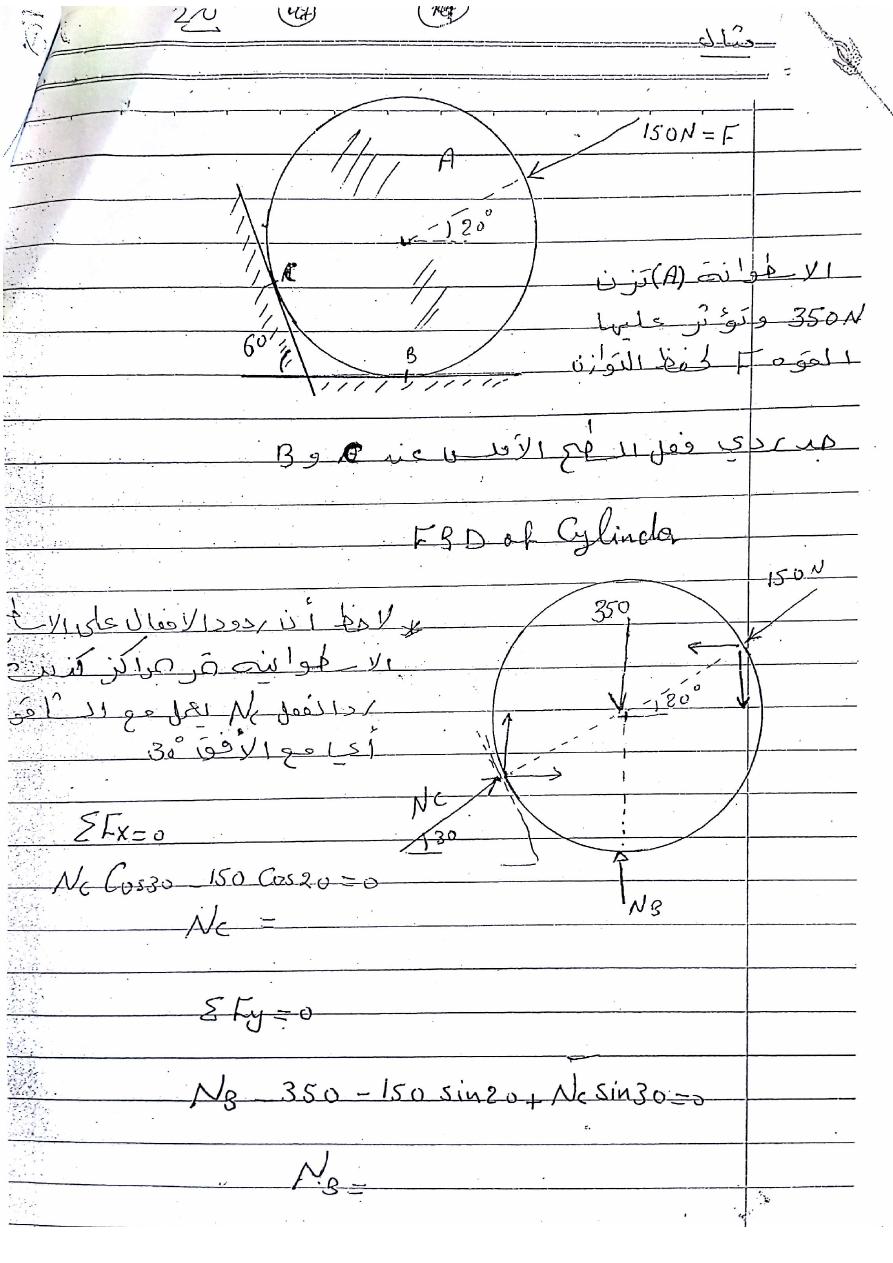 مثال
150N = F
A
20°
C
60
B
الاسطوانة (A) تزن
350N وتؤثر عليها
القوه F لحفظ التوازن
جد ردي فعل السطح الأملس عند C و B
F B D of Cylinder
150N
350
20°
* لاحظ أن ردود الافعال على
الاسطوانيه مراكز
رد الفعل Nc يعمل مع
أي مع الأفق 30°
NC
30
NB
ΣFx=0
Nc Cos30 - 150 Cos20 = 0
Nc =
ΣFy = 0
NB - 350 - 150 sin20 + Nc sin30 = 0
NB =